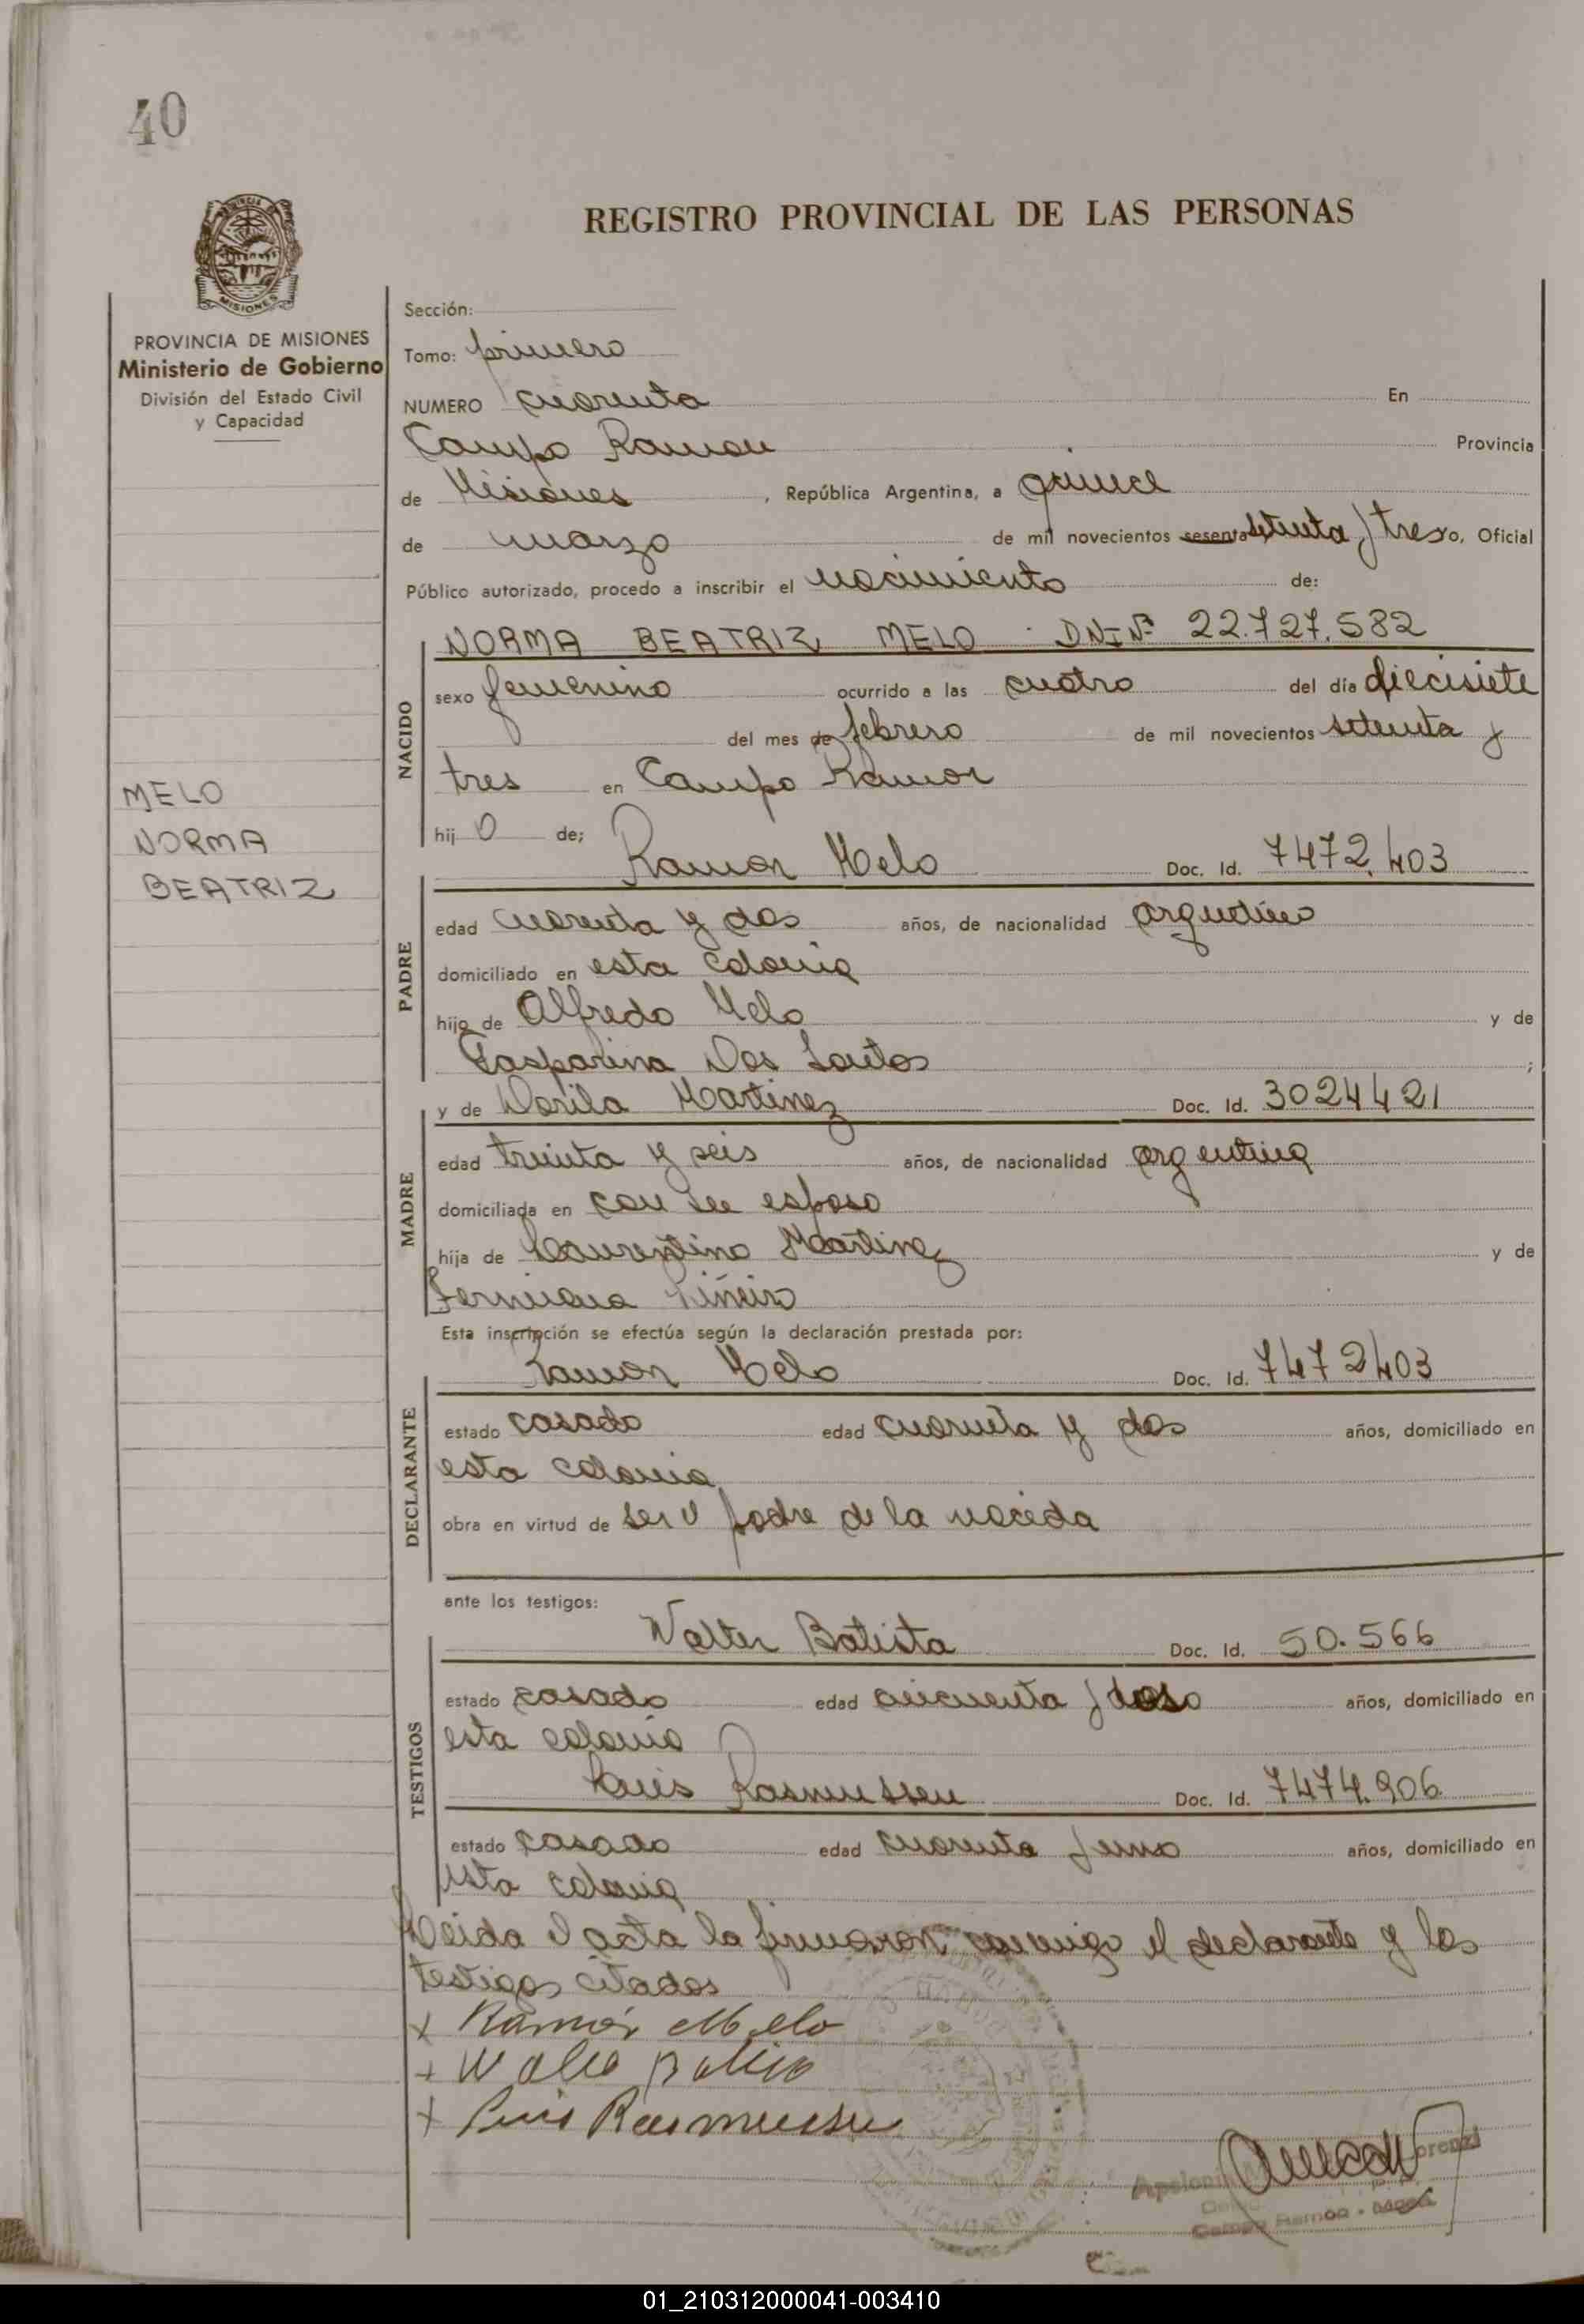 40
REGISTRO PROVINCIAL DE LAS PERSONAS
PROVINCIA DE MISIONES
Ministerio de Gobierno
División del Estado Civil
y Capacidad
MELO
NORMA
BEATRIZ
Sección:
Tomo: primero
NUMERO cuarenta En
Campo Ramon Provincia
de Misiones, República Argentina, a quince
de marzo de mil novecientos sesenta setenta y tres yo, Oficial
Público autorizado, procedo a inscribir el nacimiento de:
NACIDO
NORMA BEATRIZ MELO DNI Nº 22.727.582
sexo femenino ocurrido a las cuatro del día diecisiete
del mes de febrero de mil novecientos setenta y
tres en Campo Ramon
hij o de;
PADRE
Ramon Melo Doc. Id. 7472.403
edad cuarenta y dos años, de nacionalidad argentino
domiciliado en esta colonia
hijo de Alfredo Melo y de
Gasparina Dos Santos ;
MADRE
y de Dorila Martinez Doc. Id. 3024421
edad treinta y seis años, de nacionalidad argentina
domiciliada en con su esposo
hija de Laurentino Martinez y de
Fermiana Piñeiro
Esta inscripción se efectúa según la declaración prestada por:
DECLARANTE
Ramon Melo Doc. Id. 7472403
estado casado edad cuarenta y dos años, domiciliado en
esta colonia
obra en virtud de ser el padre de la nacida
ante los testigos:
TESTIGOS
Walter Batista Doc. Id. 50.566
estado casado edad cincuenta y años, domiciliado en
esta colonia
Luis Rasmussen Doc. Id. 7474.906
estado casado edad cuarenta y uno años, domiciliado en
esta colonia
Leida el acta la firmaron conmigo el declarante y los
testigos citados
x Ramón Melo
+
+ Luis Rasmussen
Campo Ramon - Mnes
01_210312000041-003410